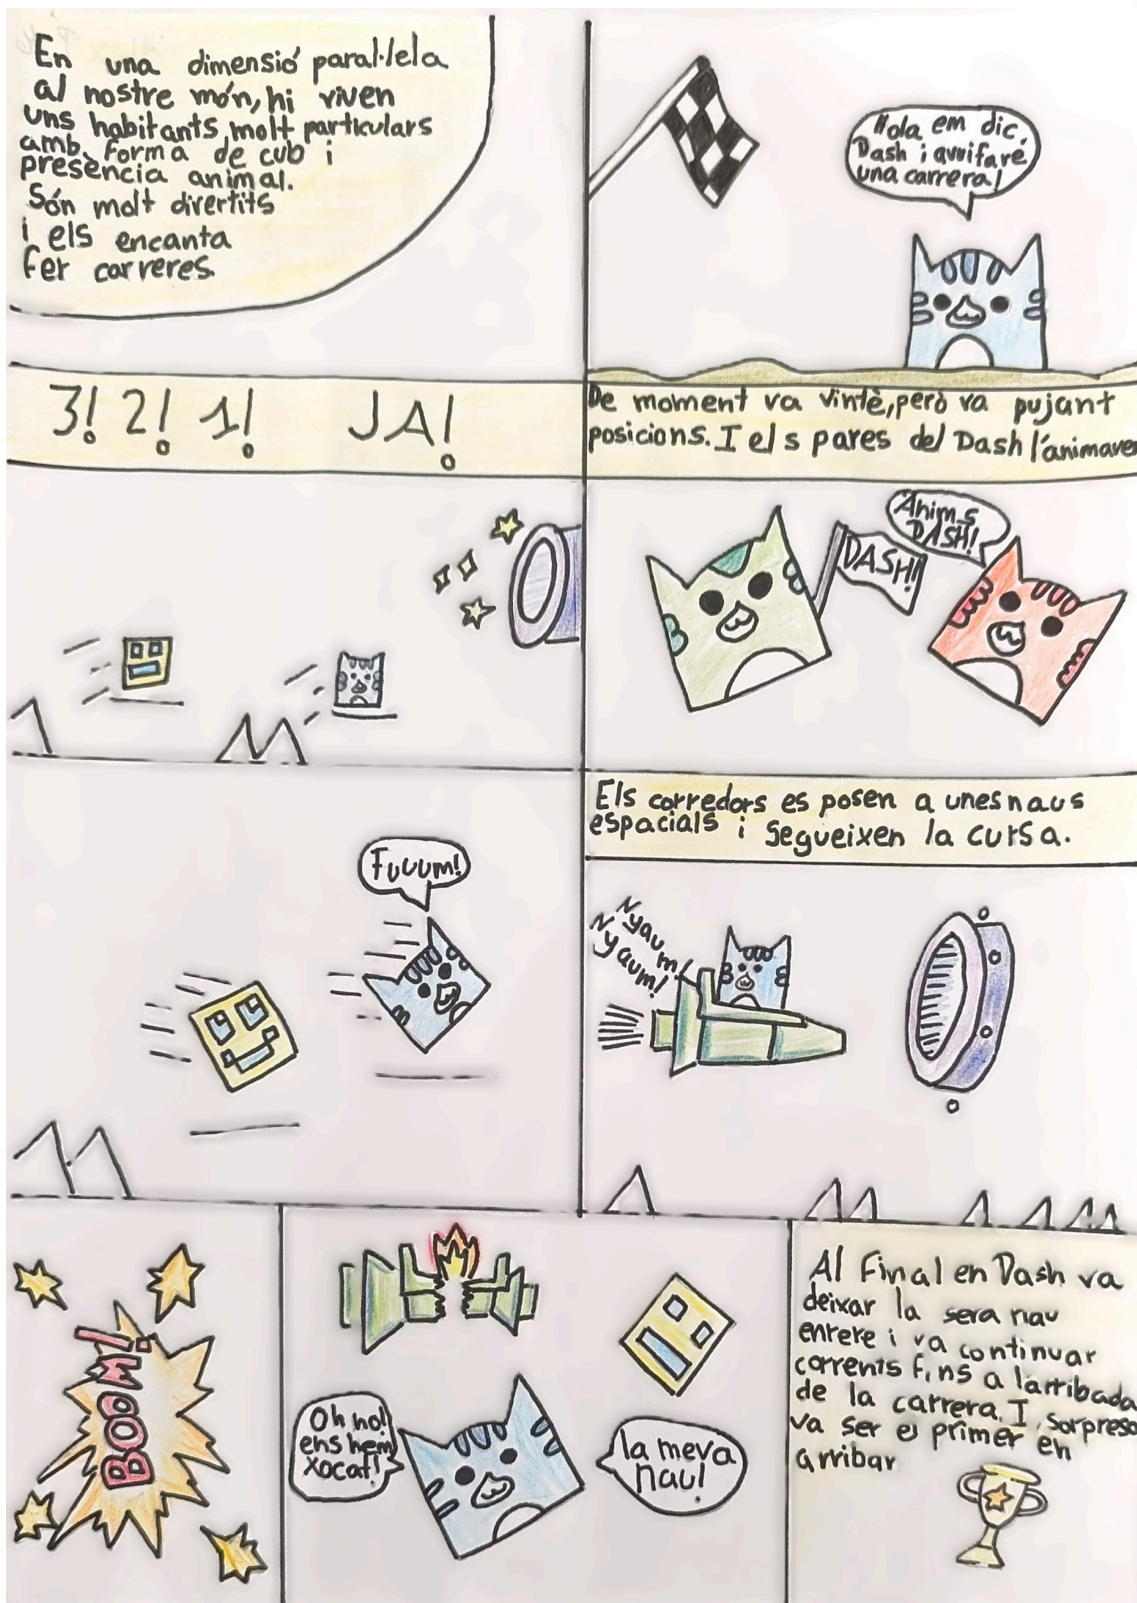 En una dimensió paral·lela
al nostre món, hi viven
uns habitants molt particulars
amb forma de cub i
presència animal.
Són molt divertits
i els encanta
fer carreres.
Hola em dic
Dash i avuifaré
una carrera!
3! 2! 1! JA!
De moment va vintè, però va pujant
posicions. I els pares del Dash l'animaven
Ànims
DASH!
DASH!
Fuuum!
Els corredors es posen a unes naus
espacials i segueixen la cursa.
Nyaum!
Nyaum!
BOOM!
Oh no!
ens hem
xocat!
la meva
nau!
Al Final en Dash va
deixar la seva nau
enrere i va continuar
corrents fins a l'arribada
de la carrera. I, sorpresa
va ser el primer en
arribar